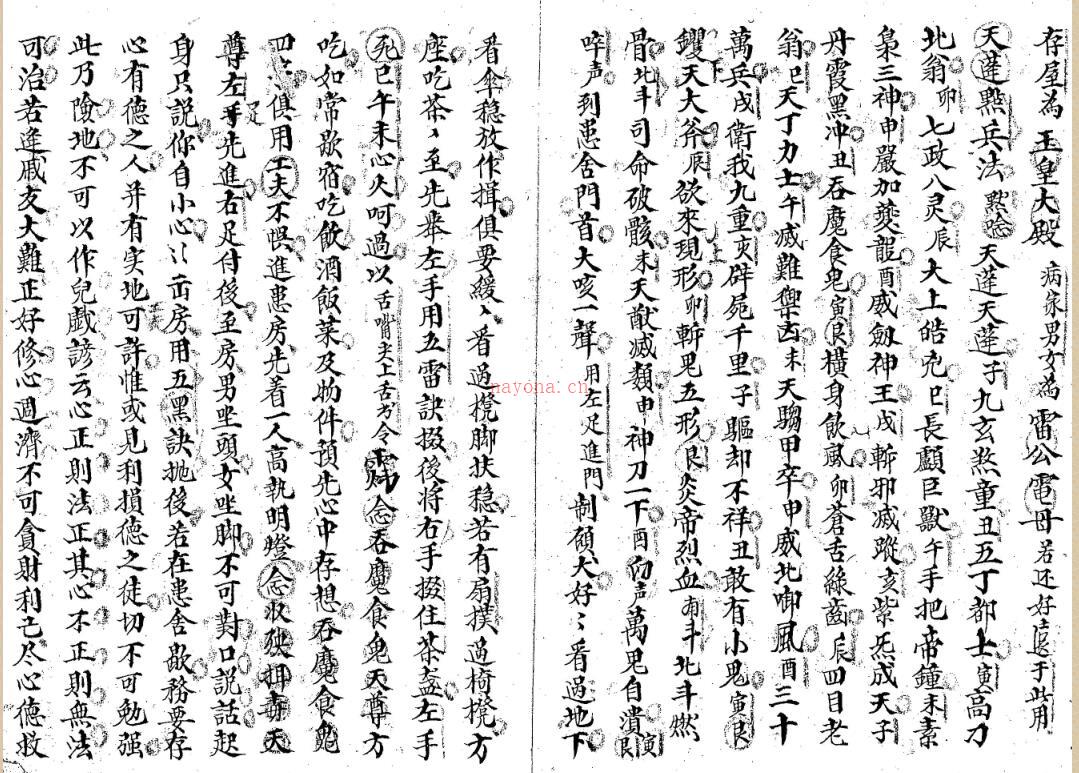 存屋為玉皇大殿 病家男女為雷公電母 若还好遠于此用
天蓬點兵法 默唸 天蓬天蓬子九玄煞童丑五丁都士寅高刀
北翁卯七政八灵辰大上皓兇巳長顱巨獸午手把帝鐘未素
梟三神申嚴加夔龍酉威劍神王戌斬邪滅蹤亥紫炁成天子
丹霞黑冲丑吞魔食鬼寅艮橫身飲風卯蒼舌綠齒辰四目老
翁巳天丁力士午滅難禦凶未天騶甲卒申威北啣風酉三十
萬兵戌衛我九重亥辟屍千里子驅却不祥丑敢有小鬼寅艮
钁天大斧辰欲來現形卯斬鬼五形艮炎帝烈血南斗北斗燃
骨北斗司命破骸未天猷滅類申神刀一下酉 声萬鬼自潰寅艮
啐声到患舍門首大咳一聲 用左足進門 制領大好〻看过地下
看傘稳放作揖俱要緩〻看過櫈脚扶穏若有扇撲過椅櫈方
座吃茶〻至先举左手用五雷訣掇後将右手掇住茶盏左手
死巳午未心火呵過以舌嘴夹上舌方令 念吞魔食鬼天尊方
吃如常歇宿吃飲酒飯菜及物件預先心中存想吞魔食鬼
四 俱用工夫不惧進患房先着一人高执明燈念收 天
尊左手足先進右足付後至房男坐頭女坐脚不可對口説話起
身只説你自小心〻出房用五黑訣抛後若在患舍歇務要存
心有德之人并有实地可許惟或見利損德之徒切不可勉强
此乃險地不可以作兒戯諺云心正則法正其心不正則無法
可治若逢戚友大難正好修心週濟不可貪財利己尽心德救
nayona.cn